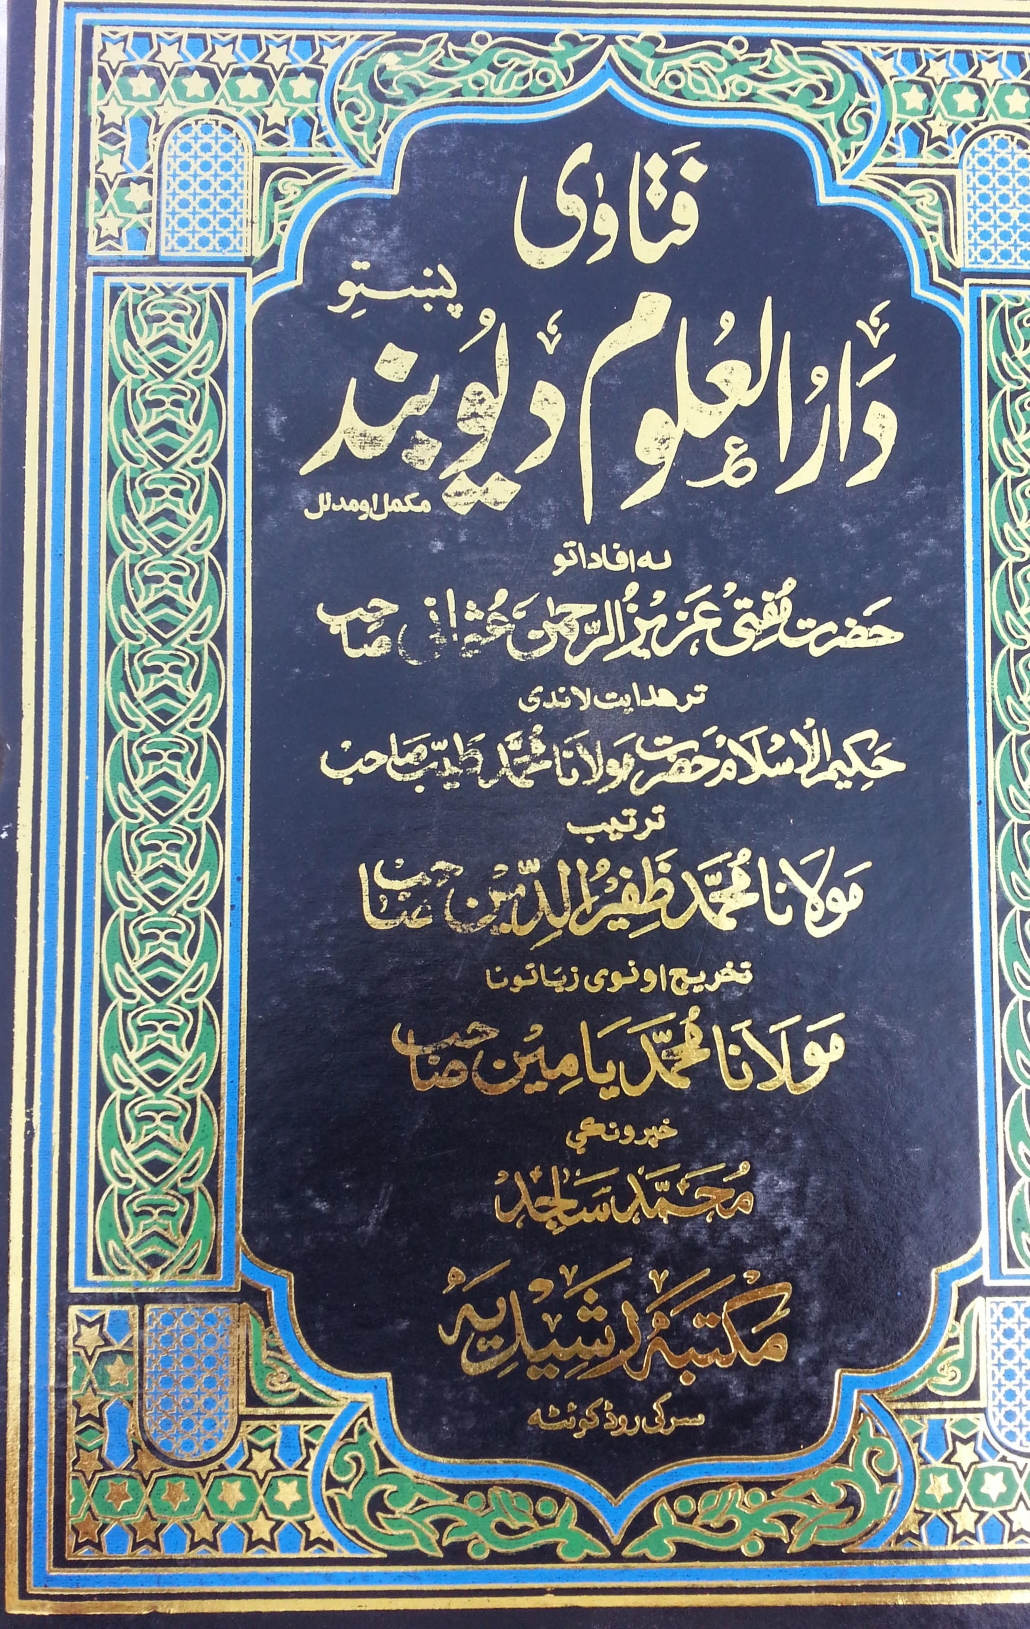 فتاوی
پښتو
دار العلوم دیوبند
مکمل او مدلل
له افاداتو
حضرت مفتی عزیز الرحمن عثمانی صاحب
تر هدایت لاندی
حکیم الاسلام حضرت مولانا محمد طیب صاحب
ترتیب
مولانا محمد ظفیر الدین صاحب
تخریج او نوی زیاتونا
مولانا محمد یامین صاحب
خپرونکې
محمد ساجد
مکتبہ رشیدیہ
سرکی روڈ کوئٹہ